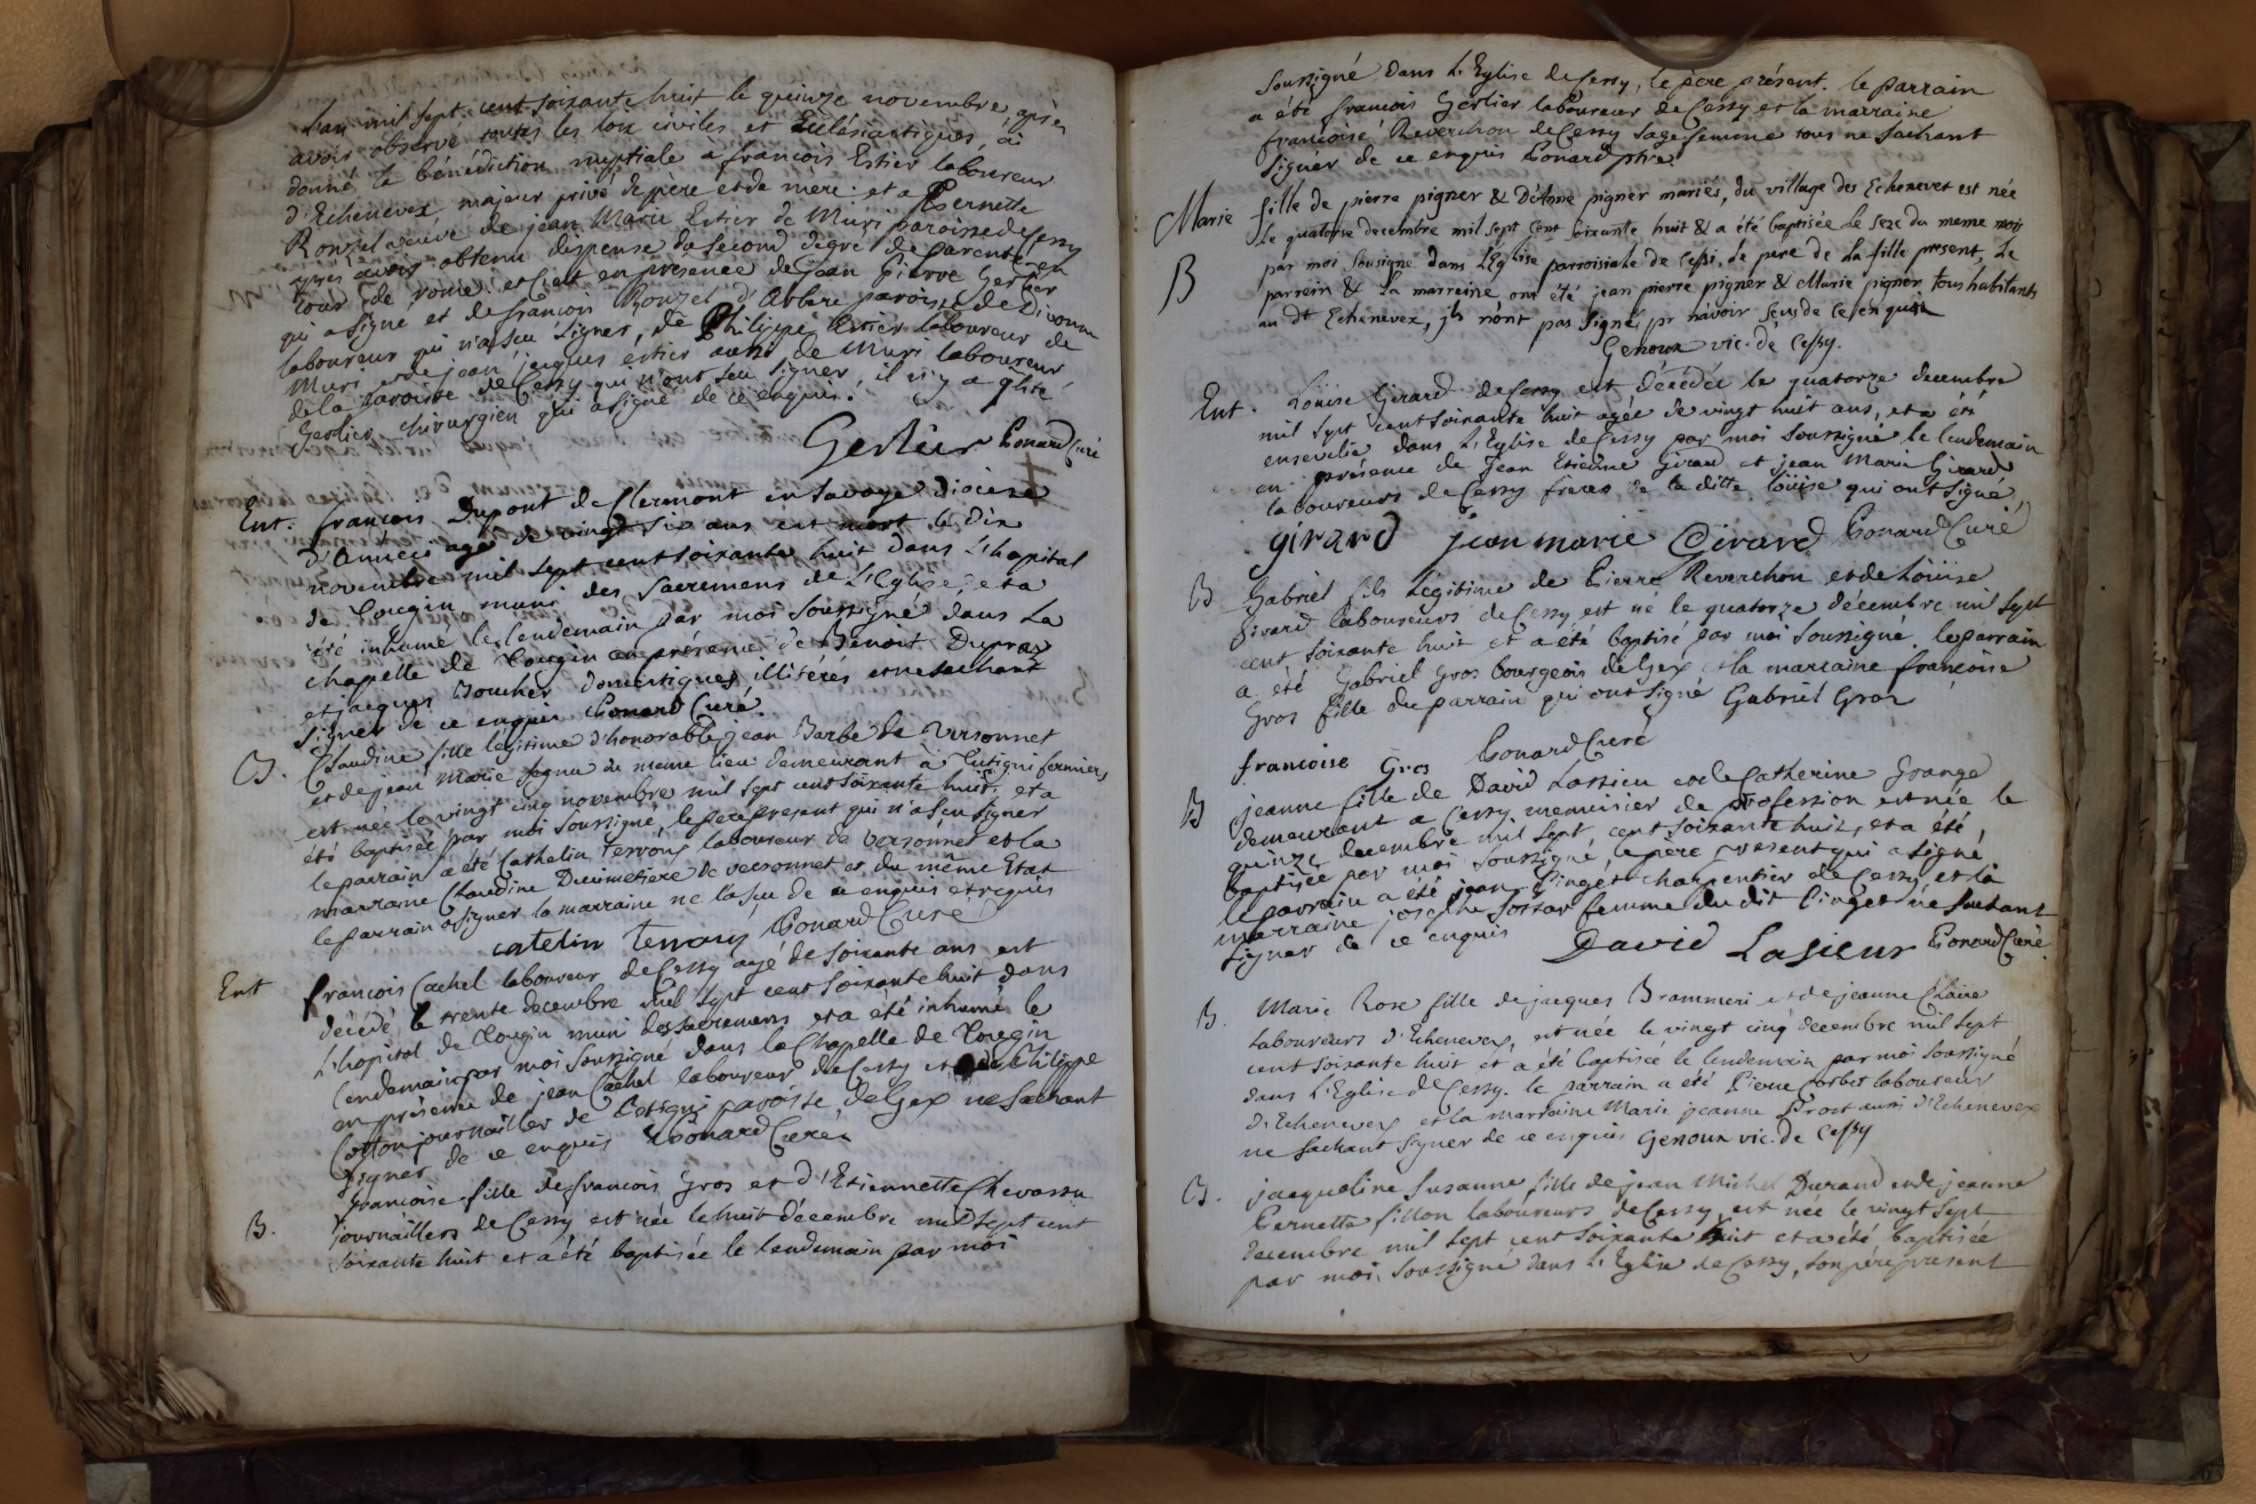 L'an mil sept cent soixante huit le quinze novembre, après
avoir observé toutes les loix civiles et Ecclésiastiques, ai
donné la bénédiction nuptiale à françois Estier laboureur
d'Echenevex, majeur privé de père et de mère: et a Pernette
Rouzel veuve de jean Marie Estier de Muri paroisse de Cessy
apres avoir obtenu dispense du second degré de parenté en
cour de rome. et c'est en présence de Jean Pierre Gerlier
qui a signé et de françois Rouzel d'Arbere paroisse de Divonne
laboureur qui n'a seu signer, de Philippe Estier laboureur de
Muri et de jean jacques estier aussi de Muri laboureur
de la paroisse de Cessy qui n'ont seu signer, il n'y a qlité
Gerlier chirurgien qui a signé de ce enquis.
Gerlier Ponard Curé
Ent. françois Dupont de Clermont en Savoye diocèse
d'Annecy agé de vingt six ans est mort le dix
novembre mil sept cent soixante huit dans l'hopital
de Tougin muni des Sacremens de L'Eglise, et a
été inhumé le lendemain par moi soussigné dans La
chapelle de Tougin en présence de Benoit Dupraz
et jacques Boucher domestiques illitérés et ne sachant
signer de ce enquis Ponard Curé.
B. Claudine fille légitime d'honorable jean Barbe de Versonnet
et de jean Marie Segnu du meme lieu demeurant à Pitigni fermiers
est née le vingt cinq novembre mil sept cent soixante huit, et a
été baptisée par moi soussigné, le pere present qui n'a seu signer
le parrain a été Cathelin Tervoux laboureur de versonnet et la
marraine Claudine Ducimetiere de versonnet et du même Etat
le parrain a signer la marraine ne l'a sçu de ce enquis et requis
catelin tervoux Ponard Curé
Ent françois Cachel laboureur de Cessy agé de soixante ans est
décédé le trente decembre mil sept cent soixante huit dans
L'hopital de Tougin muni des sacremens et a été inhumé le
lendemain par moi soussigné dans la Chapelle de Tougin
en présence de jean Cachel laboureur de Cessy et de Philippe
Cotton journailler de Pitigni paroisse de Gex ne sachant
signer de ce enquis Ponard Curé.
B. françoise fille de françois Gros et d'Etiennette Chevassu
journaillers de Cessy est née le huit décembre mil sept cent
soixante huit et a été baptisée le lendemain par moi
soussigné dans L'Eglise de Cessy, le père présent. le parrain
a été françois Gerlier laboureur de Cessy et la marraine
françoise Reverchon de Cessy sage femme tous ne sachant
signer de ce enquis Ponard ptre.
Marie fille de pierre pigner & D'Anne pigner mariés, du village des Echenevex est née
Le quatorse decembre mil sept Cent soixante huit & a été baptisée Le seze du meme mois
par moi Sousigné dans L'Eglise parroisiale de Cessi, Le pere de La fille present, Le
B parrein & La marreine ont été jean pierre pigner & Marie pigner tous habitants
au dt Echenevex, ils n'ont pas signé, pr n'avoir seus de ce enquis
Genoux vic. de Cessy.
Ent. Loüise Girard de Cessy est décédée le quatorze decembre
mil sept cent soixante huit agée de vingt huit ans, et a été
ensevelie dans L'Eglise de Cessy par moi soussigné le lendemain
en présence de Jean Etienne Girard et jean Marie Girard
laboureurs de Cessy freres de la ditte loüise qui ont signé,
girard jean marie Girard Ponard Curé
B Gabriel fils Légitime de Pierre Reverchon et de Loüise
girard laboureurs de Cessy est né le quatorze décembre mil sept
cent soixante huit et a été baptisé par moi soussigné. le parrain
a été Gabriel Gros bourgeois de Gex et la marraine françoise
Gros fille du parrain qui ont signé Gabriel Gros
francoise Gros Ponard Curé
B jeanne fille de David Lassieu et de Catherine Grange
demeurant a Cessy menuisier de profession est née le
quinze decembre mil sept cent soixante huit, et a été,
baptisée par moi soussigné, le père présent qui a signé
le parrain a été jean Pinget charpentier de Cessy et la
marraine josephe Sossar femme du dit Pinget ne sachant
signer de ce enquis David Lasieur Ponard Curé.
B. Marie Rose fille de jacques Brammeri et de jeanne Claire
laboureurs d'Echenevex, est née le vingt cinq decembre mil sept
cent soixante huit et a été baptisée le lendemain par moi soussigné
dans L'Eglise de Cessy. le parrain a été Pierre Corbet laboureur
d'Echenevex et la marraine Marie jeanne Prost aussi d'Echenevex
ne sachant signer de ce enquis Genoux vic. de Cessy
B. jacqueline Susanne fille de jean Michel Durand et de jeanne
Pernette fillon laboureurs de Cessy, est née le vingt sept
decembre mil sept cent soixante huit et a été baptisée
par moi soussigné dans L'Eglise de Cessy, son père présent